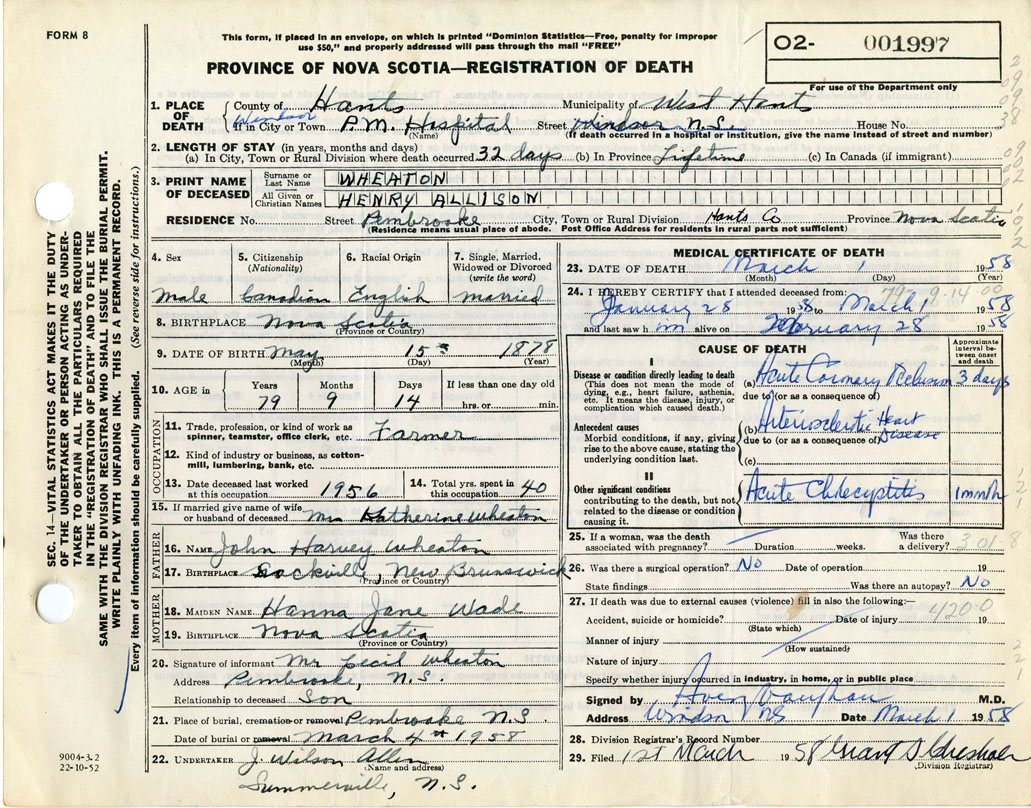 FORM 8
This form, if placed in an envelope, on which is printed "Dominion Statistics—Free, penalty for improper
use $50," and properly addressed will pass through the mail "FREE"
PROVINCE OF NOVA SCOTIA—REGISTRATION OF DEATH
02- 001997
For use of the Department only
SEC. 14—VITAL STATISTICS ACT MAKES IT THE DUTY
OF THE UNDERTAKER OR PERSON ACTING AS UNDER-
TAKER TO OBTAIN ALL THE PARTICULARS REQUIRED
IN THE "REGISTRATION OF DEATH" AND TO FILE THE
SAME WITH THE DIVISION REGISTRAR WHO SHALL ISSUE THE BURIAL PERMIT.
WRITE PLAINLY WITH UNFADING INK. THIS IS A PERMANENT RECORD.
Every item of information should be carefully supplied. (See reverse side for instructions.)
1. PLACE OF DEATH
County of Hants Municipality of West Hants
Windsor
If in City or Town P.M. Hospital Street Windsor N.S. House No.
(Name) (If death occurred in a hospital or institution, give the name instead of street and number)
2. LENGTH OF STAY (in years, months and days)
(a) In City, Town or Rural Division where death occurred 32 days (b) In Province Lifetime (c) In Canada (if immigrant)
3. PRINT NAME OF DECEASED
Surname or Last Name WHEATON
All Given or Christian Names HENRY ALLISON
RESIDENCE No. Street Pembrooke City, Town or Rural Division Hants Co Province Nova Scotia
(Residence means usual place of abode. Post Office Address for residents in rural parts not sufficient)
4. Sex 5. Citizenship (Nationality) 6. Racial Origin 7. Single, Married, Widowed or Divorced (write the word)
Male Canadian English Married
8. BIRTHPLACE Nova Scotia
(Province or Country)
9. DATE OF BIRTH May 15 1878
(Month) (Day) (Year)
10. AGE in Years Months Days If less than one day old
79 9 14 hrs. or min.
OCCUPATION
11. Trade, profession, or kind of work as
spinner, teamster, office clerk, etc. Farmer
12. Kind of industry or business, as cotton-
mill, lumbering, bank, etc.
13. Date deceased last worked
at this occupation 1956
14. Total yrs. spent in
this occupation 40
15. If married give name of wife
or husband of deceased Mrs Katherine Wheaton
FATHER
16. NAME John Harvey Wheaton
17. BIRTHPLACE Sackville, New Brunswick
(Province or Country)
MOTHER
18. MAIDEN NAME Hanna Jane Wade
19. BIRTHPLACE Nova Scotia
(Province or Country)
20. Signature of informant Mr Cecil Wheaton
Address Pembrooke, N.S.
Relationship to deceased Son
21. Place of burial, cremation or removal Pembrooke N.S.
Date of burial or removal March 4th 1958
22. UNDERTAKER J. Wilson Allen
(Name and address)
Summerville, N.S.
9004-3.2
22-10-52
MEDICAL CERTIFICATE OF DEATH
23. DATE OF DEATH March 1 1958
(Month) (Day) (Year)
24. I HEREBY CERTIFY that I attended deceased from:
January 28 1958 to March 1 1958
and last saw him alive on February 28 1958
CAUSE OF DEATH
Approximate interval between onset and death
I
Disease or condition directly leading to death
(This does not mean the mode of
dying, e.g., heart failure, asthenia,
etc. It means the disease, injury, or
complication which caused death.)
(a) Acute Coronary Occlusion 3 days
due to (or as a consequence of)
Antecedent causes
Morbid conditions, if any, giving
rise to the above cause, stating the
underlying condition last.
(b) Arteriosclerotic Heart Disease
due to (or as a consequence of)
(c)
II
Other significant conditions
contributing to the death, but not
related to the disease or condition
causing it.
Acute Cholecystitis 1 month
25. If a woman, was the death
associated with pregnancy? Duration weeks. Was there a delivery?
26. Was there a surgical operation? No Date of operation 19
State findings Was there an autopsy? No
27. If death was due to external causes (violence) fill in also the following:—
Accident, suicide or homicide? Date of injury 19
420-0
(State which)
Manner of injury
(How sustained)
Nature of injury
Specify whether injury occurred in industry, in home, or in public place
Signed by Avery Vaughan M.D.
Address Windsor NS Date March 1 1958
28. Division Registrar's Record Number
29. Filed 1st March 1958
(Division Registrar)